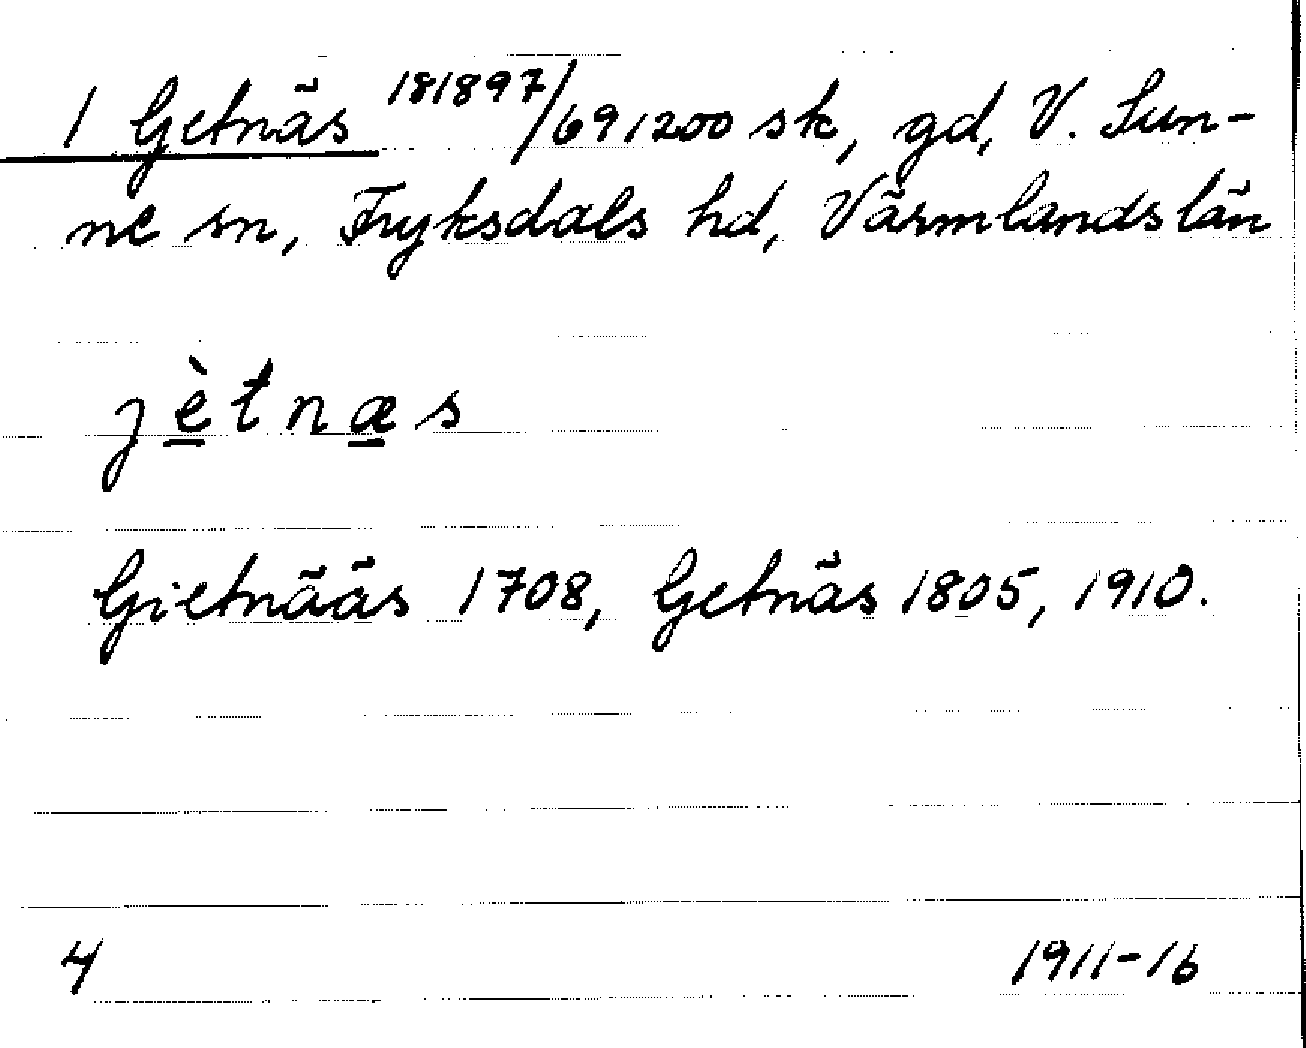 1 Getnäs 181897/691200 sk, gd, V. Sun-
ne sn, Fryksdals hd, Värmlands län
jètnæs
Gietnääs 1708, Getnäs 1805, 1910.
4 1911-16